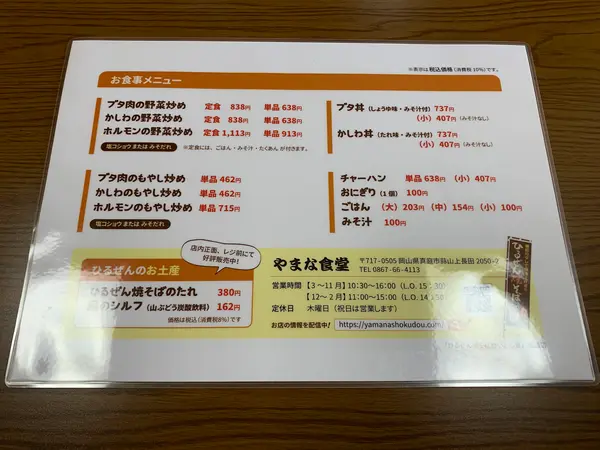 ※表示は税込価格(消費税 10%)です。
お食事メニュー
ブタ肉の野菜炒め 定食 838円 単品 638円
かしわの野菜炒め 定食 838円 単品 638円
ホルモンの野菜炒め 定食 1,113円 単品 913円
塩コショウ または みそだれ ※定食には、ごはん・みそ汁・たくあん が付きます。
ブタ肉のもやし炒め 単品 462円
かしわのもやし炒め 単品 462円
ホルモンのもやし炒め 単品 715円
塩コショウ または みそだれ
ブタ丼(しょうゆ味・みそ汁付) 737円
(小) 407円(みそ汁なし)
かしわ丼(たれ味・みそ汁付) 737円
(小) 407円(みそ汁なし)
チャーハン 単品 638円 (小) 407円
おにぎり(1個) 100円
ごはん (大) 203円 (中) 154円 (小) 100円
みそ汁 100円
店内正面、レジ前にて
好評販売中!
ひるぜんのお土産
ひるぜん焼そばのたれ 380円
のシルフ(山ぶどう炭酸飲料) 162円
価格は税込(消費税8%)です
やまな食堂
〒717-0505 岡山県真庭市蒜山上長田 2050-2
TEL 0867-66-4113
営業時間 【3〜11月】10:30〜16:00(L.O. 15:30)
【12〜2月】11:00〜15:00(L.O. 14:
定休日 木曜日(祝日は営業します)
お店の情報を配信中! https://yamanashokudou.com/